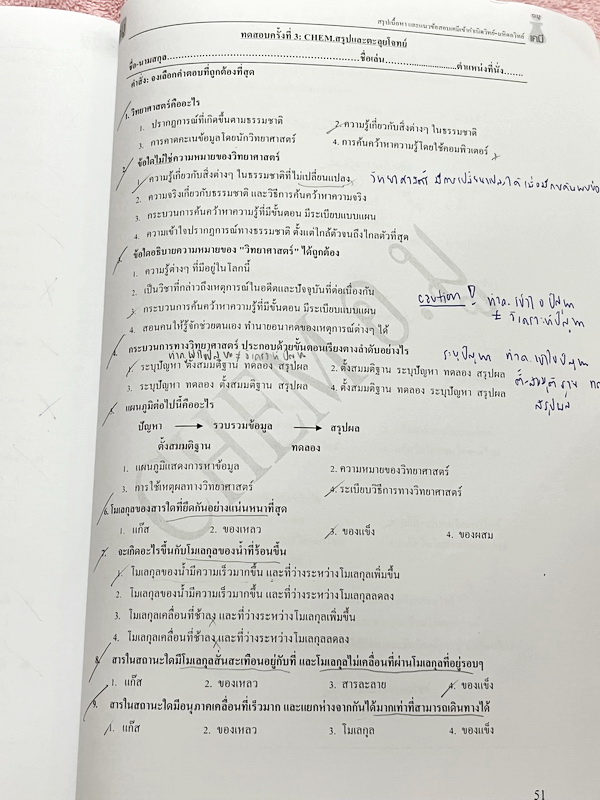 สรุปเนื้อหาและแนวข้อสอบเคมีเข้ากำเนิดวิทย์-มหิดลวิทย์ เคมี
ทดสอบครั้งที่ 3: CHEM.สรุปและตะลุยโจทย์
ชื่อ-นามสกุล................ชื่อเล่น................ตำแหน่งที่นั่ง.......
คำสั่ง: จงเลือกคำตอบที่ถูกต้องที่สุด
1. วิทยาศาสตร์คืออะไร
1. ปรากฏการณ์ที่เกิดขึ้นตามธรรมชาติ 2. ความรู้เกี่ยวกับสิ่งต่างๆ ในธรรมชาติ
3. การคาดคะเนข้อมูลโดยนักวิทยาศาสตร์ 4. การค้นคว้าหาความรู้โดยใช้คอมพิวเตอร์
2. ข้อใดไม่ใช่ความหมายของวิทยาศาสตร์
1. ความรู้เกี่ยวกับสิ่งต่างๆ ในธรรมชาติที่ไม่เปลี่ยนแปลง วิทยาศาสตร์ มีการเปลี่ยนแปลงได้ เมื่อมีการค้นพบข้อ
2. ความจริงเกี่ยวกับธรรมชาติ และวิธีการค้นคว้าหาความจริง
3. กระบวนการค้นคว้าหาความรู้ที่มีขั้นตอน มีระเบียบแบบแผน
4. ความเข้าใจปรากฏการณ์ทางธรรมชาติ ตั้งแต่ใกล้ตัวจนถึงไกลตัวที่สุด
3. ข้อใดอธิบายความหมายของ "วิทยาศาสตร์" ได้ถูกต้อง
1. ความรู้ต่างๆ ที่มีอยู่ในโลกนี้
2. เป็นวิชาที่กล่าวถึงเหตุการณ์ในอดีตและปัจจุบันที่ต่อเนื่องกัน
caution! ทำค. เข้าใจปัญหา
3. กระบวนการค้นคว้าหาความรู้ที่มีขั้นตอน มีระเบียบแบบแผน
≠ วิเคราะห์ปัญหา
4. สอนคนให้รู้จักช่วยตนเอง ทำนายอนาคตของเหตุการณ์ต่างๆ ได้
4. กระบวนการทางวิทยาศาสตร์ ประกอบด้วยขั้นตอนเรียงตามลำดับอย่างไร
ระบุปัญหา ทำค. เข้าใจปัญหา
≠ วิเคราะห์ปัญหา
1. ระบุปัญหา ตั้งสมมติฐาน ทดลอง สรุปผล 2. ตั้งสมมติฐาน ระบุปัญหา ทดลอง สรุปผล
ตั้งสมมติฐาน ทด
3. ระบุปัญหา ทดลอง ตั้งสมมติฐาน สรุปผล 4. ตั้งสมมติฐาน ทดลอง ระบุปัญหา สรุปผล
สรุปผล
5. แผนภูมิต่อไปนี้คืออะไร
ปัญหา → รวบรวมข้อมูล → สรุปผล
ตั้งสมมติฐาน ทดลอง
1. แผนภูมิแสดงการหาข้อมูล 2. ความหมายของวิทยาศาสตร์
3. การใช้เหตุผลทางวิทยาศาสตร์ 4. ระเบียบวิธีการทางวิทยาศาสตร์
6. โมเลกุลของสารใดที่ยึดกันอย่างแน่นหนาที่สุด
1. แก๊ส 2. ของเหลว 3. ของแข็ง 4. ของผสม
7. จะเกิดอะไรขึ้นกับโมเลกุลของน้ำที่ร้อนขึ้น
1. โมเลกุลของน้ำมีความเร็วมากขึ้น และที่ว่างระหว่างโมเลกุลเพิ่มขึ้น
2. โมเลกุลของน้ำมีความเร็วมากขึ้น และที่ว่างระหว่างโมเลกุลลดลง
3. โมเลกุลเคลื่อนที่ช้าลง และที่ว่างระหว่างโมเลกุลเพิ่มขึ้น
4. โมเลกุลเคลื่อนที่ช้าลง และที่ว่างระหว่างโมเลกุลลดลง
8. สารในสถานะใดมีโมเลกุลสั่นสะเทือนอยู่กับที่ และโมเลกุลไม่เคลื่อนที่ผ่านโมเลกุลที่อยู่รอบๆ
1. แก๊ส 2. ของเหลว 3. สารละลาย 4. ของแข็ง
9. สารในสถานะใดมีอนุภาคเคลื่อนที่เร็วมาก และแยกห่างจากกันได้มากเท่าที่สามารถเดินทางได้
1. แก๊ส 2. ของเหลว 3. โมเลกุล 4. ของแข็ง
51